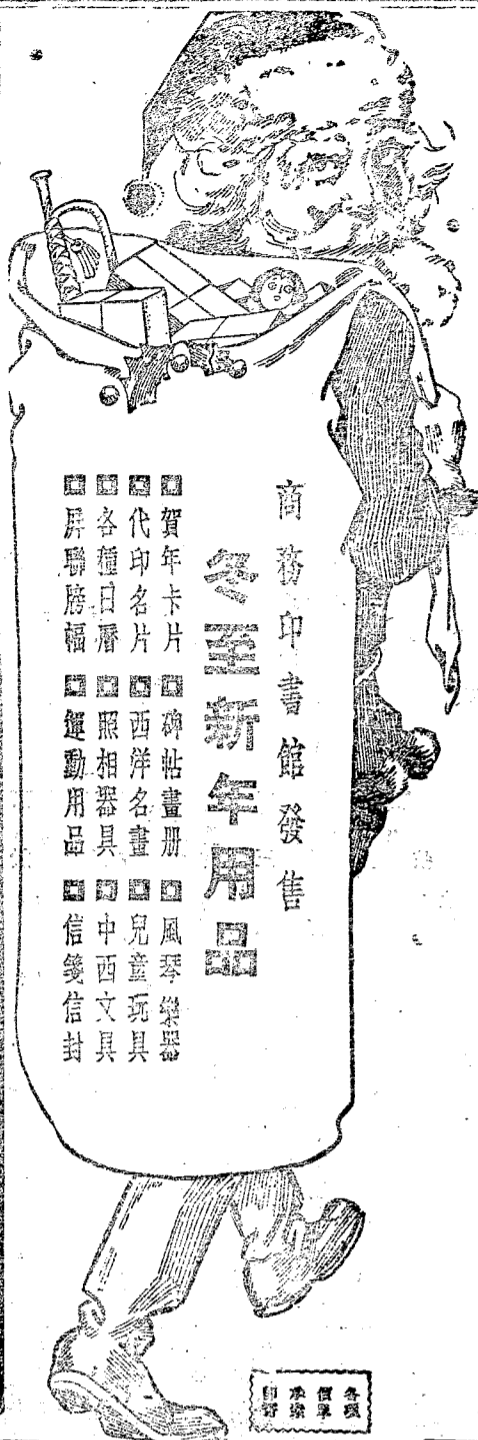 商務印書館發售
冬至新年用品
賀年卡片 碑帖畫册 風琴樂器
代印名片 西洋名畫 兒童玩具
各種日曆 照相器具 中西文具
屏聯牓幅 運動用品 信箋信封
各種
價單
承索
即寄